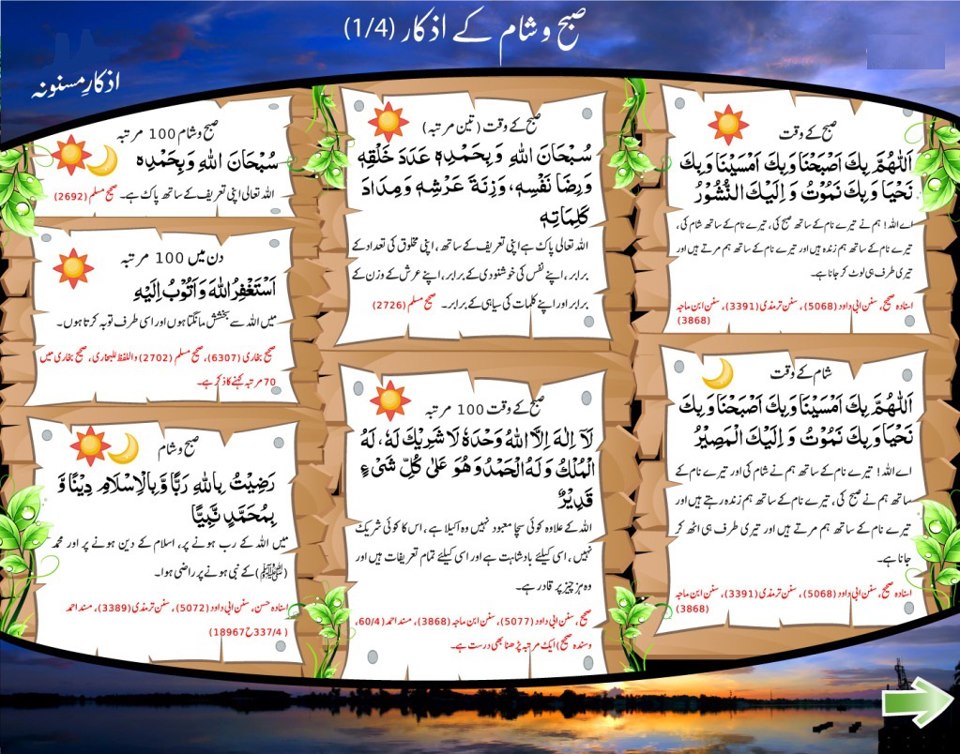 صبح و شام کے اذکار (1/4)
اذکارِ مسنونہ
صبح کے وقت
اَللّٰهُمَّ بِكَ اَصْبَحْنَا وَبِكَ اَمْسَيْنَا وَبِكَ
نَحْيَا وَبِكَ نَمُوْتُ وَ اِلَيْكَ النُّشُوْرُ
اے اللہ! ہم نے تیرے نام کے ساتھ صبح کی، تیرے نام کے ساتھ شام کی،
تیرے نام کے ساتھ ہم زندہ ہیں اور تیرے نام کے ساتھ ہم مرتے ہیں اور
تیری طرف ہی لوٹ کر جانا ہے۔
اسنادہ صحیح، سنن ابی داود (5068)، سنن ترمذی (3391)، سنن ابن ماجہ
(3868)
شام کے وقت
اَللّٰهُمَّ بِكَ اَمْسَيْنَا وَبِكَ اَصْبَحْنَا وَبِكَ
نَحْيَا وَبِكَ نَمُوْتُ وَ اِلَيْكَ الْمَصِيْرُ
اے اللہ! تیرے نام کے ساتھ ہم نے شام کی اور تیرے نام کے
ساتھ ہم نے صبح کی، تیرے نام کے ساتھ ہم زندہ رہتے ہیں اور
تیرے نام کے ساتھ ہم مرتے ہیں اور تیری طرف ہی اٹھ کر
جانا ہے۔
اسنادہ صحیح، سنن ابی داود (5068)، سنن ترمذی (3391)، سنن ابن ماجہ
(3868)
صبح کے وقت (تین مرتبہ)
سُبْحَانَ اللهِ وَ بِحَمْدِهٖ عَدَدَ خَلْقِهٖ
وَرِضَا نَفْسِهٖ، وَزِنَةَ عَرْشِهٖ وَمِدَادَ
كَلِمَاتِهٖ
اللہ تعالیٰ پاک ہے اپنی تعریف کے ساتھ، اپنی مخلوق کی تعداد کے
برابر، اپنے نفس کی خوشنودی کے برابر، اپنے عرش کے وزن کے
برابر اور اپنے کلمات کی سیاہی کے برابر۔ صحیح مسلم (2726)
صبح کے وقت 100 مرتبہ
لَآ اِلٰهَ اِلَّا اللهُ وَحْدَهٗ لَا شَرِيْكَ لَهٗ، لَهُ
الْمُلْكُ وَلَهُ الْحَمْدُ وَهُوَ عَلٰى كُلِّ شَیْءٍ
قَدِيْرٌ
اللہ کے علاوہ کوئی سچا معبود نہیں وہ اکیلا ہے، اس کا کوئی شریک
نہیں، اسی کیلئے بادشاہت ہے اور اسی کیلئے تمام تعریفات ہیں اور
وہ ہر چیز پر قادر ہے۔
صحیح، سنن ابی داود (5077) سنن ابن ماجہ (3868)، مسند احمد (60/4،
وسندہ صحیح) ایک مرتبہ پڑھنا بھی درست ہے۔
صبح و شام 100 مرتبہ
سُبْحَانَ اللهِ وَبِحَمْدِهٖ
اللہ تعالیٰ اپنی تعریف کے ساتھ پاک ہے۔ صحیح مسلم (2692)
دن میں 100 مرتبہ
اَسْتَغْفِرُ اللهَ وَ اَتُوْبُ اِلَيْهِ
میں اللہ سے بخشش مانگتا ہوں اور اسی طرف توبہ کرتا ہوں۔
صحیح بخاری (6307)، صحیح مسلم (2702) واللفظ للبخاری، صحیح بخاری میں
70 مرتبہ کہنے کا ذکر ہے۔
صبح و شام
رَضِيْتُ بِاللهِ رَبًّا وَّ بِالْاِسْلَامِ دِيْنًا وَّ
بِمُحَمَّدٍ نَّبِيًّا
میں اللہ کے رب ہونے پر، اسلام کے دین ہونے پر اور محمد
(ﷺ) کے نبی ہونے پر راضی ہوا۔
اسنادہ حسن، سنن ابی داود (5072)، سنن ترمذی (3389)، مسند احمد
(337/4ح18967)